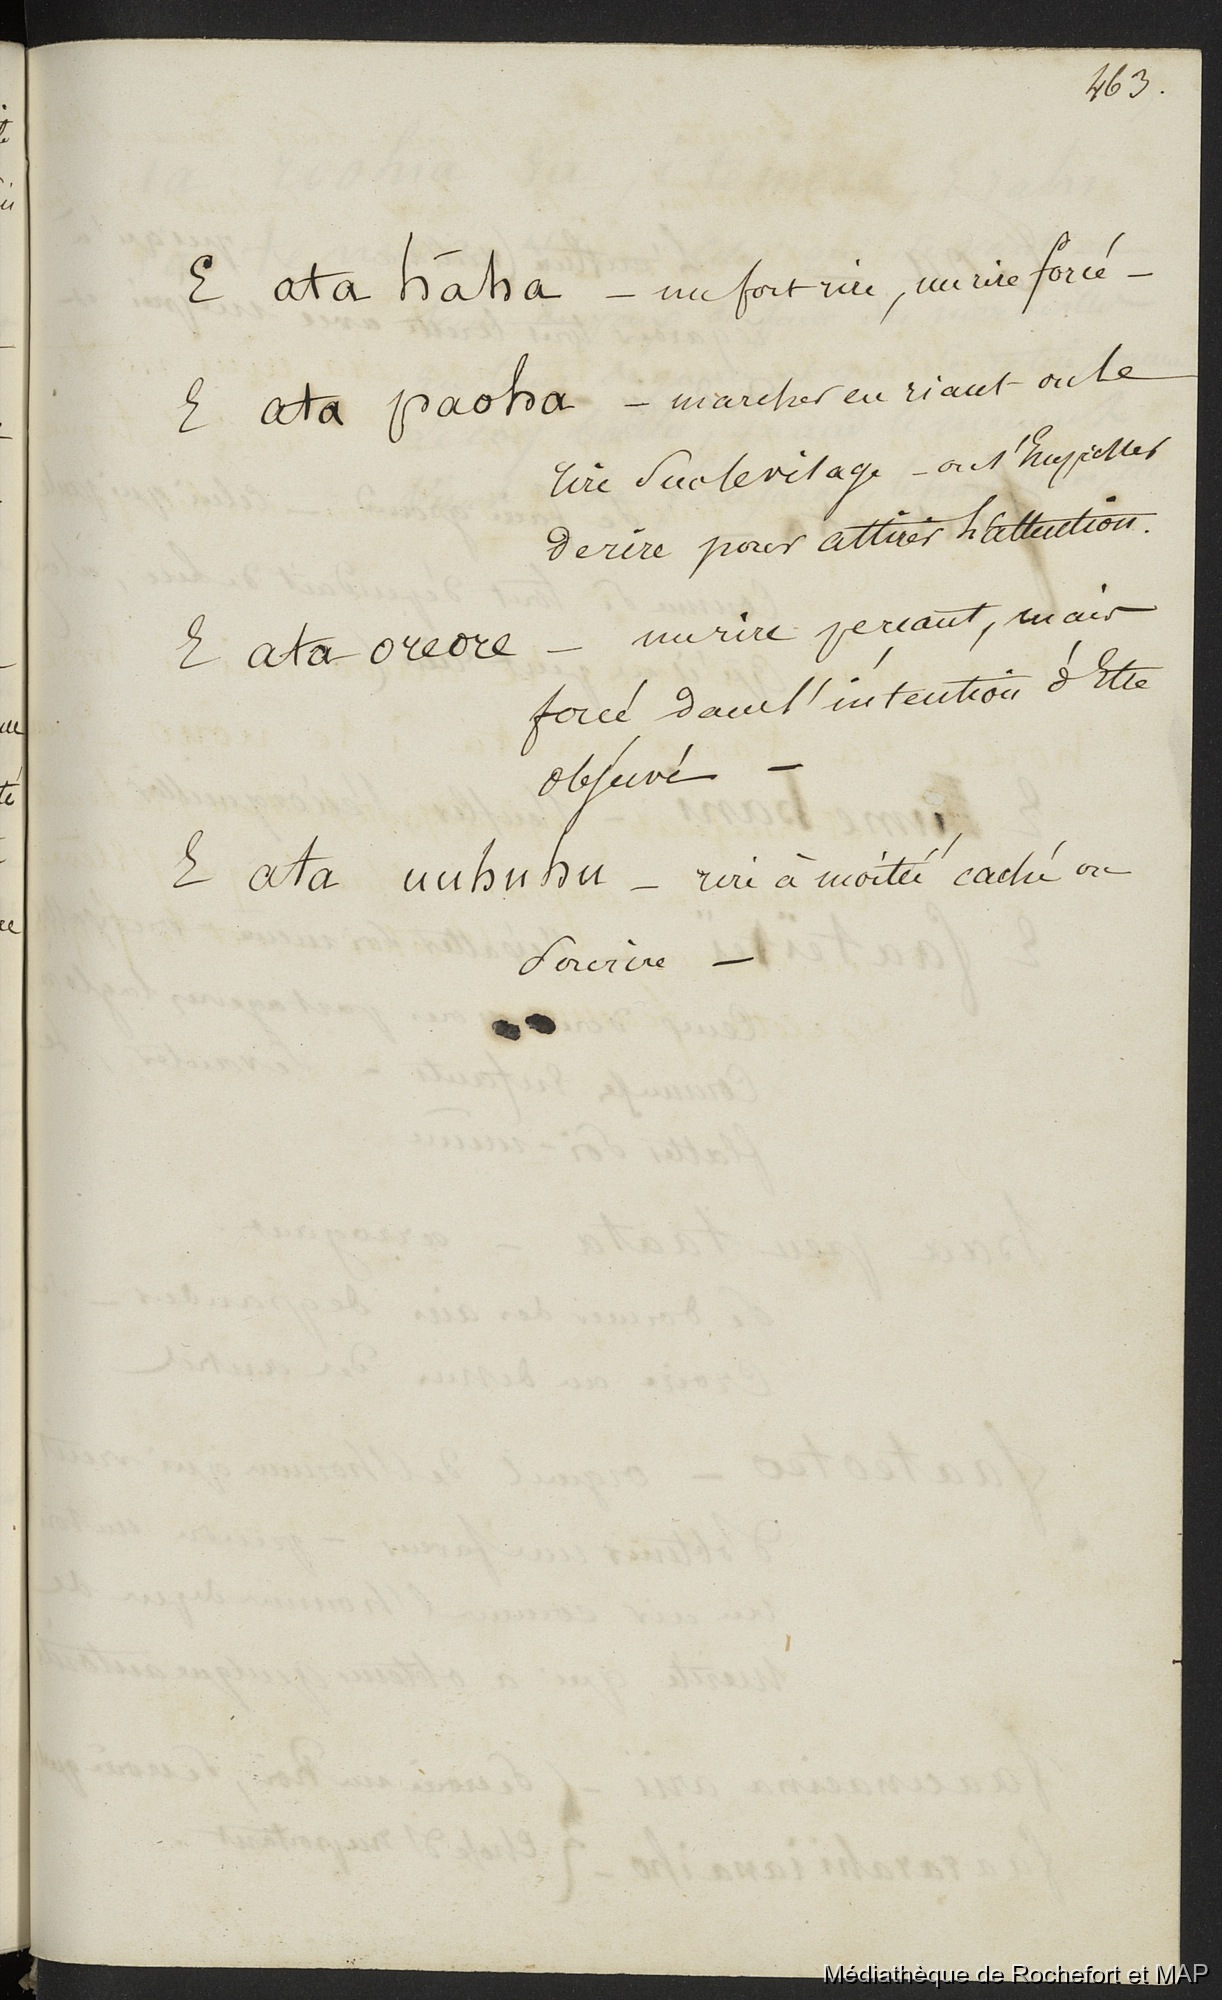 463.
E ata hāha – un fort rire, un rire forcé –
E ata paoha – marcher en riant ou le
rire sur le visage – ou s'empêcher
de rire pour attirer l'attention.
E ata oreore – un rire perçant, mais
forcé dans l'intention d'Etre
observé –
E ata uuhuhu – rire à moitié caché ou
Sourire –
Médiathèque de Rochefort et MAP